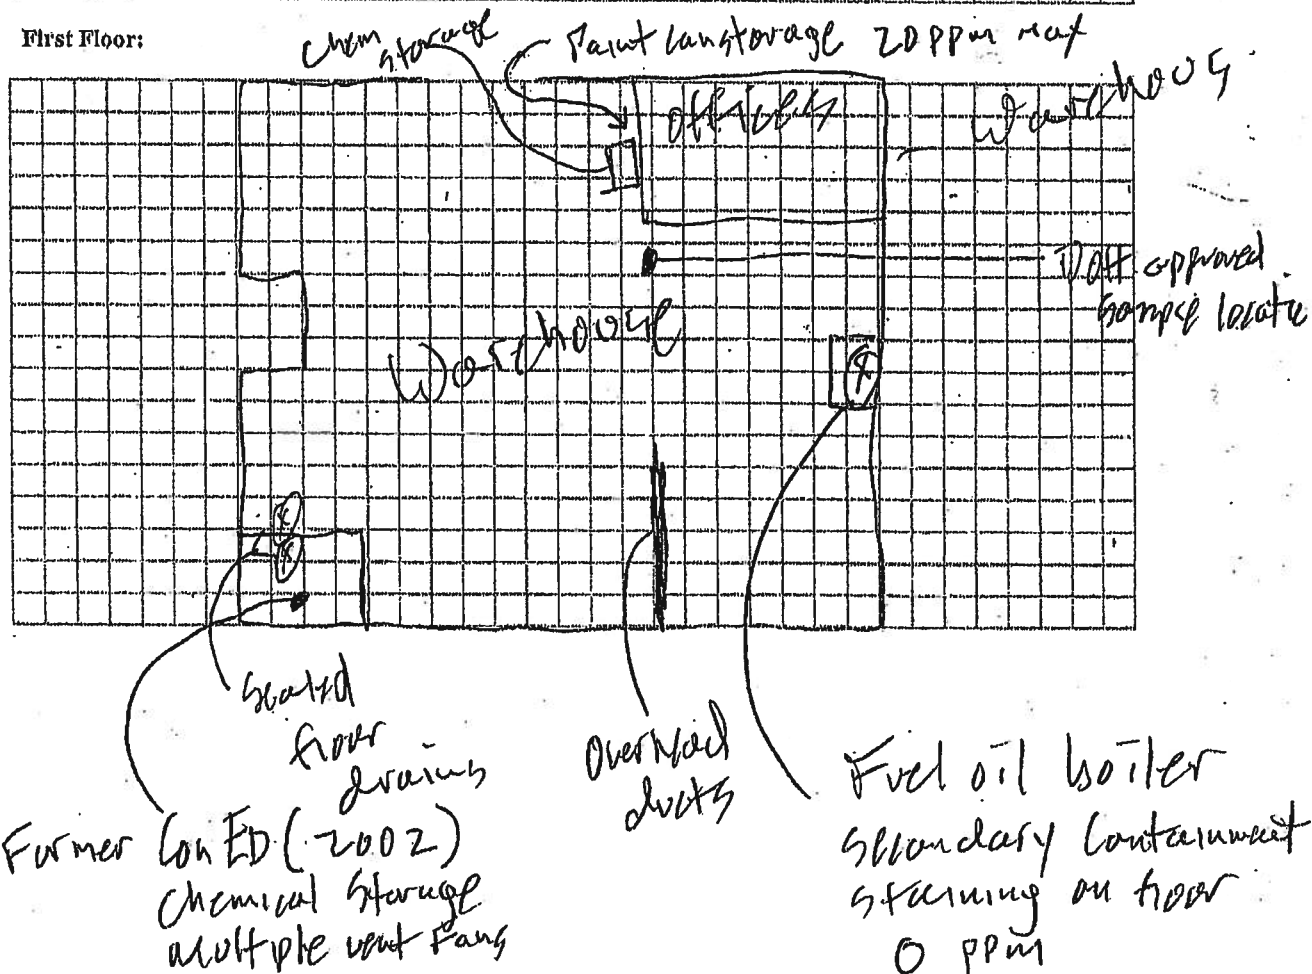 First Floor:
Chem storage
Paint can storage 20 ppm max
offices
Warehous
approved
sample locatio
Warehouse
Sealed
floor
drains
Overhead
ducts
Fuel oil boiler
Secondary Containment
staining on floor
0 ppm
Former Con ED (2002)
Chemical Storage
multiple vent Fans